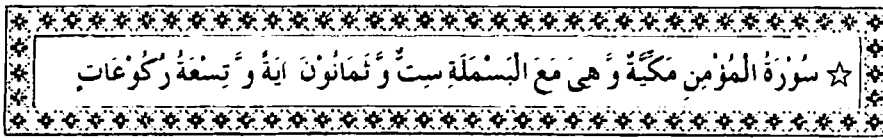 ☆ سُوْرَةُ الْمُؤْمِنِ مَكِّيَّةٌ وَّ هِىَ مَعَ الْبَسْمَلَةِ سِتٌّ وَّ ثَمَانُوْنَ ايَةً وَّ تِسْعَةُ رُكُوْعَاتٍ